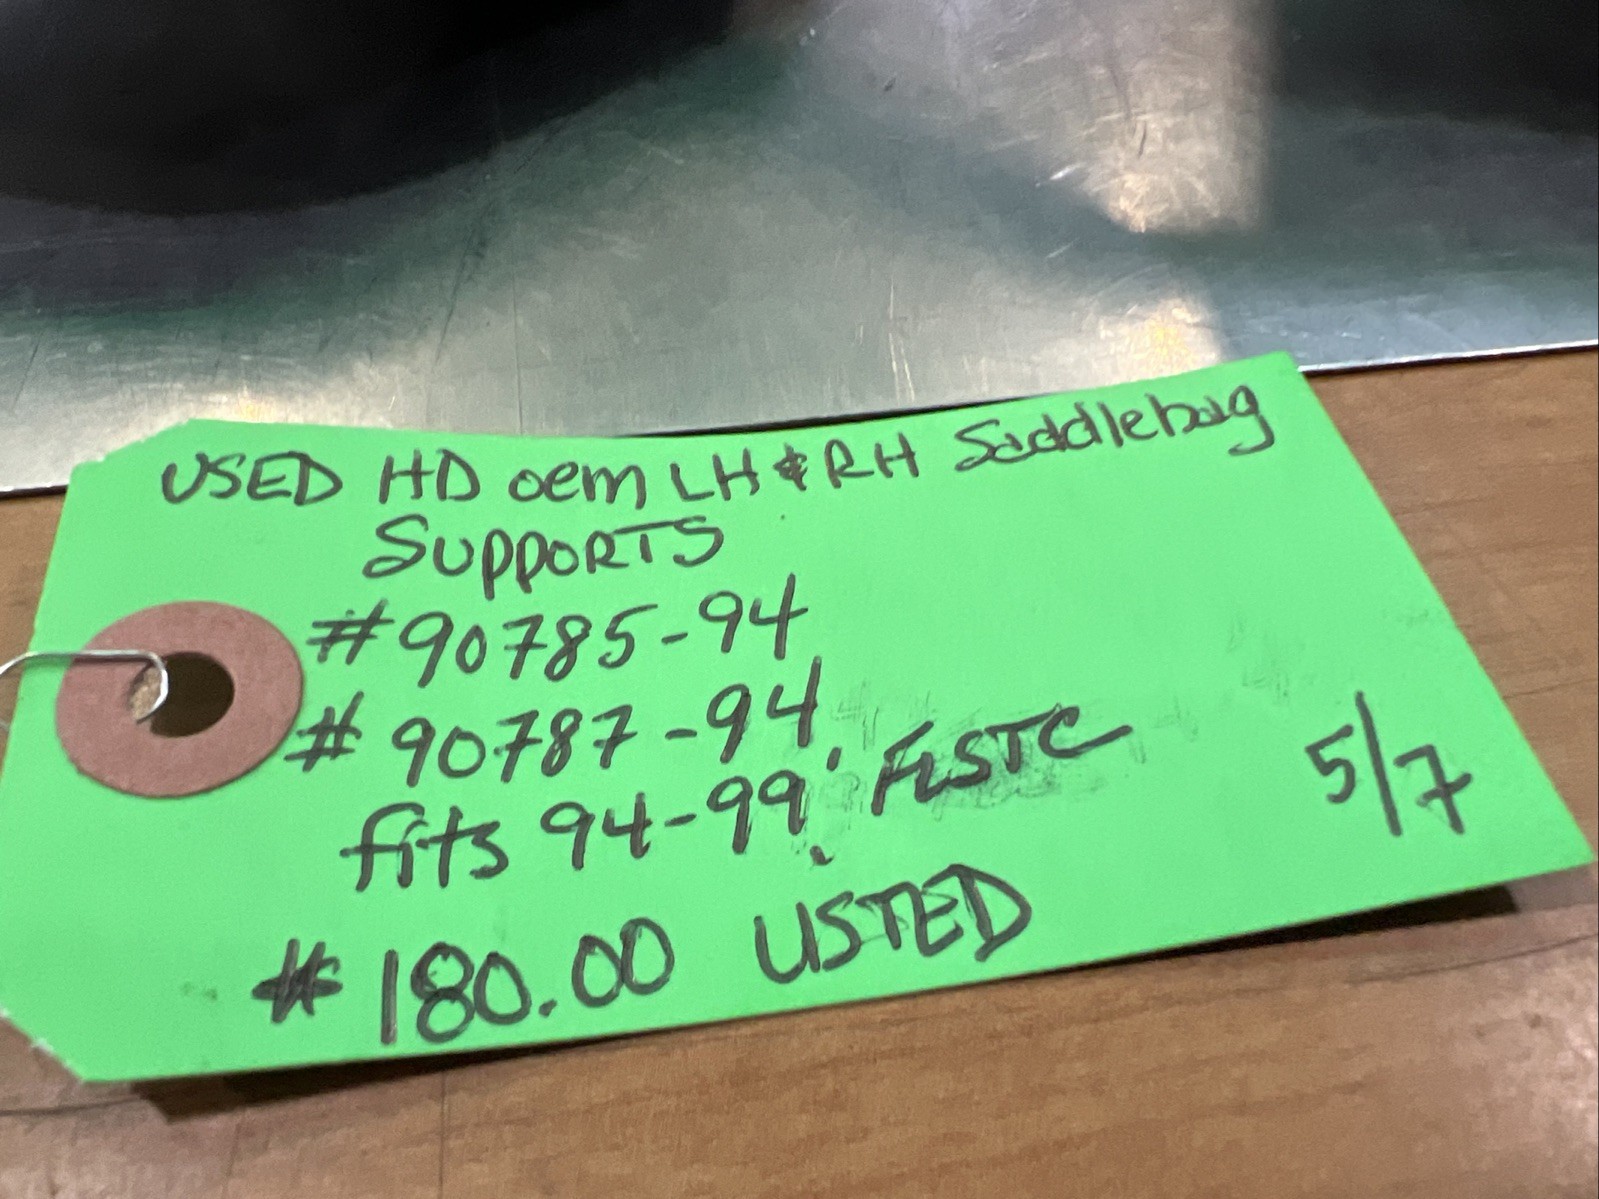 USED HD oem LH & RH Saddlebag
SUPPORTS
#90785-94
#90787-94
fits 94-99 FLSTC
5/7
$180.00 USTED